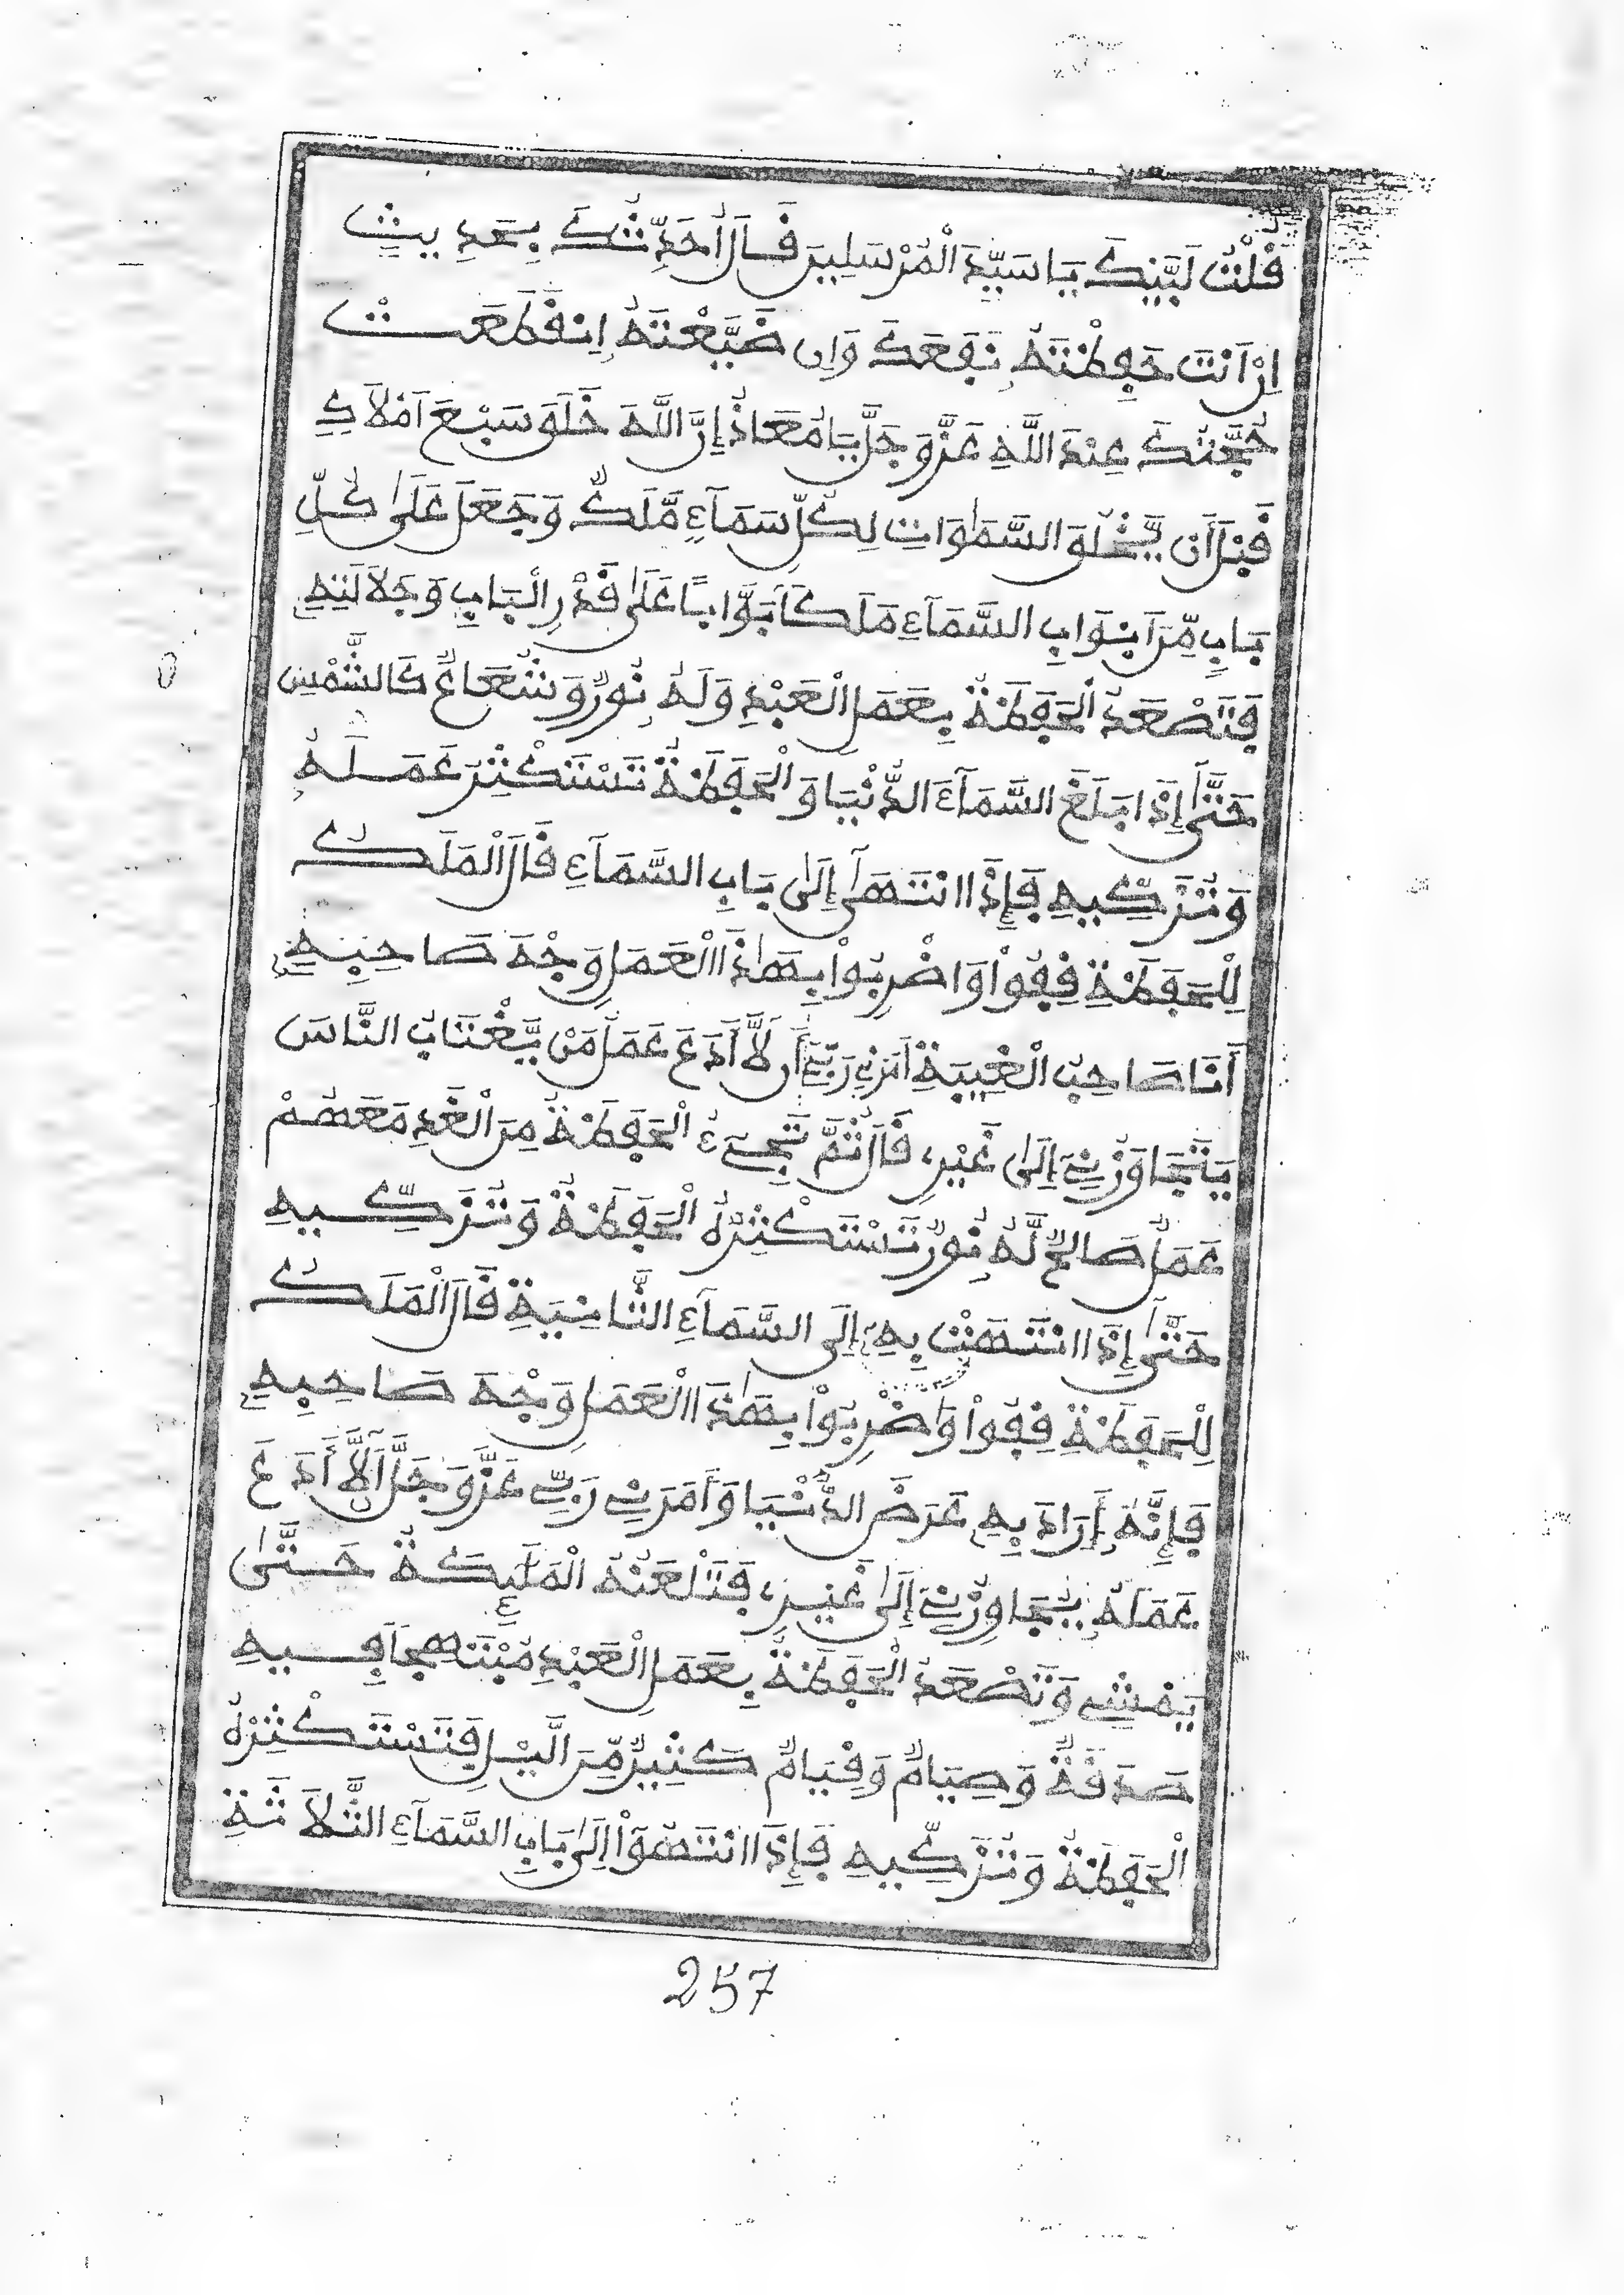 قُلْتُ لَبَّيْكَ يَا سَيِّدَ الْمُرْسَلِينَ قَالَ أُحَدِّثُكَ بِحَدِيثٍ
اِنْ اَنْتَ حَفِظْتَهُ نَفَعَكَ وَإِن ضَيَّعْتَهُ اِنقَطَعَتْ
حُجَّتُكَ عِنْدَ اللَّهِ عَزَّ وَجَلَّ يَا مُعَاذُ إِنَّ اللَّهَ خَلَقَ سَبْعَ اَمْلَاكٍ
قَبْلَ أَن يَّخْلُقَ السَّمَٰوَاتِ لِكُلِّ سَمَآءٍ مَّلَكٌ وَجَعَلَ عَلَىٰ كُلِّ
بَابٍ مِّنَ اَبْوَابِ السَّمَآءِ مَلَكًا بَوَّابًا عَلَىٰ قَدْرِ الْبَابِ وَجَلَالَتِهِ
فَتَصْعَدُ الْحَفَظَةُ بِعَمَلِ الْعَبْدِ وَلَهُ نُورٌ وَشُعَاعٌ كَالشَّمْسِ
حَتَّىٰ إِذَا بَلَغَ السَّمَآءَ الدُّنْيَا وَالْحَفَظَةُ تَسْتَكْثِرُ عَمَلَهُ
وَتُزَكِّيهِ فَإِذَا انْتَهَىٰ إِلَىٰ بَابِ السَّمَآءِ قَالَ الْمَلَكُ
لِلْحَفَظَةِ قِفُواْ وَاضْرِبُواْ بِهَٰذَا الْعَمَلِ وَجْهَ صَاحِبِهِ
أَنَا صَاحِبُ الْغِيبَةِ أَمَرَنِي رَبِّي أَن لَّا أَدَعَ عَمَلَ مَنْ يَّغْتَابُ النَّاسَ
يَتَجَاوَزُنِي إِلَىٰ غَيْرِي قَالَ ثُمَّ تَجِيءُ الْحَفَظَةُ مِنَ الْغَدِ مَعَهُمْ
عَمَلٌ صَالِحٌ لَّهُ نُورٌ تَسْتَكْثِرُهُ الْحَفَظَةُ وَتُزَكِّيهِ
حَتَّىٰ إِذَا انْتَهَتْ بِهِ إِلَى السَّمَآءِ الثَّانِيَةِ قَالَ الْمَلَكُ
لِلْحَفَظَةِ قِفُواْ وَاضْرِبُواْ بِهَٰذَا الْعَمَلِ وَجْهَ صَاحِبِهِ
فَإِنَّهُ أَرَادَ بِهِ عَرَضَ الدُّنْيَا وَأَمَرَنِي رَبِّي عَزَّ وَجَلَّ أَلَّا أَدَعَ
عَمَلَهُ يُجَاوِزُنِي إِلَىٰ غَيْرِي فَتَلْعَنُهُ الْمَلَٰٓئِكَةُ حَتَّىٰ
يَمْشِي وَتَصْعَدُ الْحَفَظَةُ بِعَمَلِ الْعَبْدِ مُبْتَهِجًا فِيهِ
صَدَقَةٌ وَصِيَامٌ وَقِيَامٌ كَثِيرٌ مِّنَ الَّيْلِ فَتَسْتَكْثِرُهُ
الْحَفَظَةُ وَتُزَكِّيهِ فَإِذَا انْتَهَوْاْ إِلَىٰ بَابِ السَّمَآءِ الثَّلَاثَةِ
257